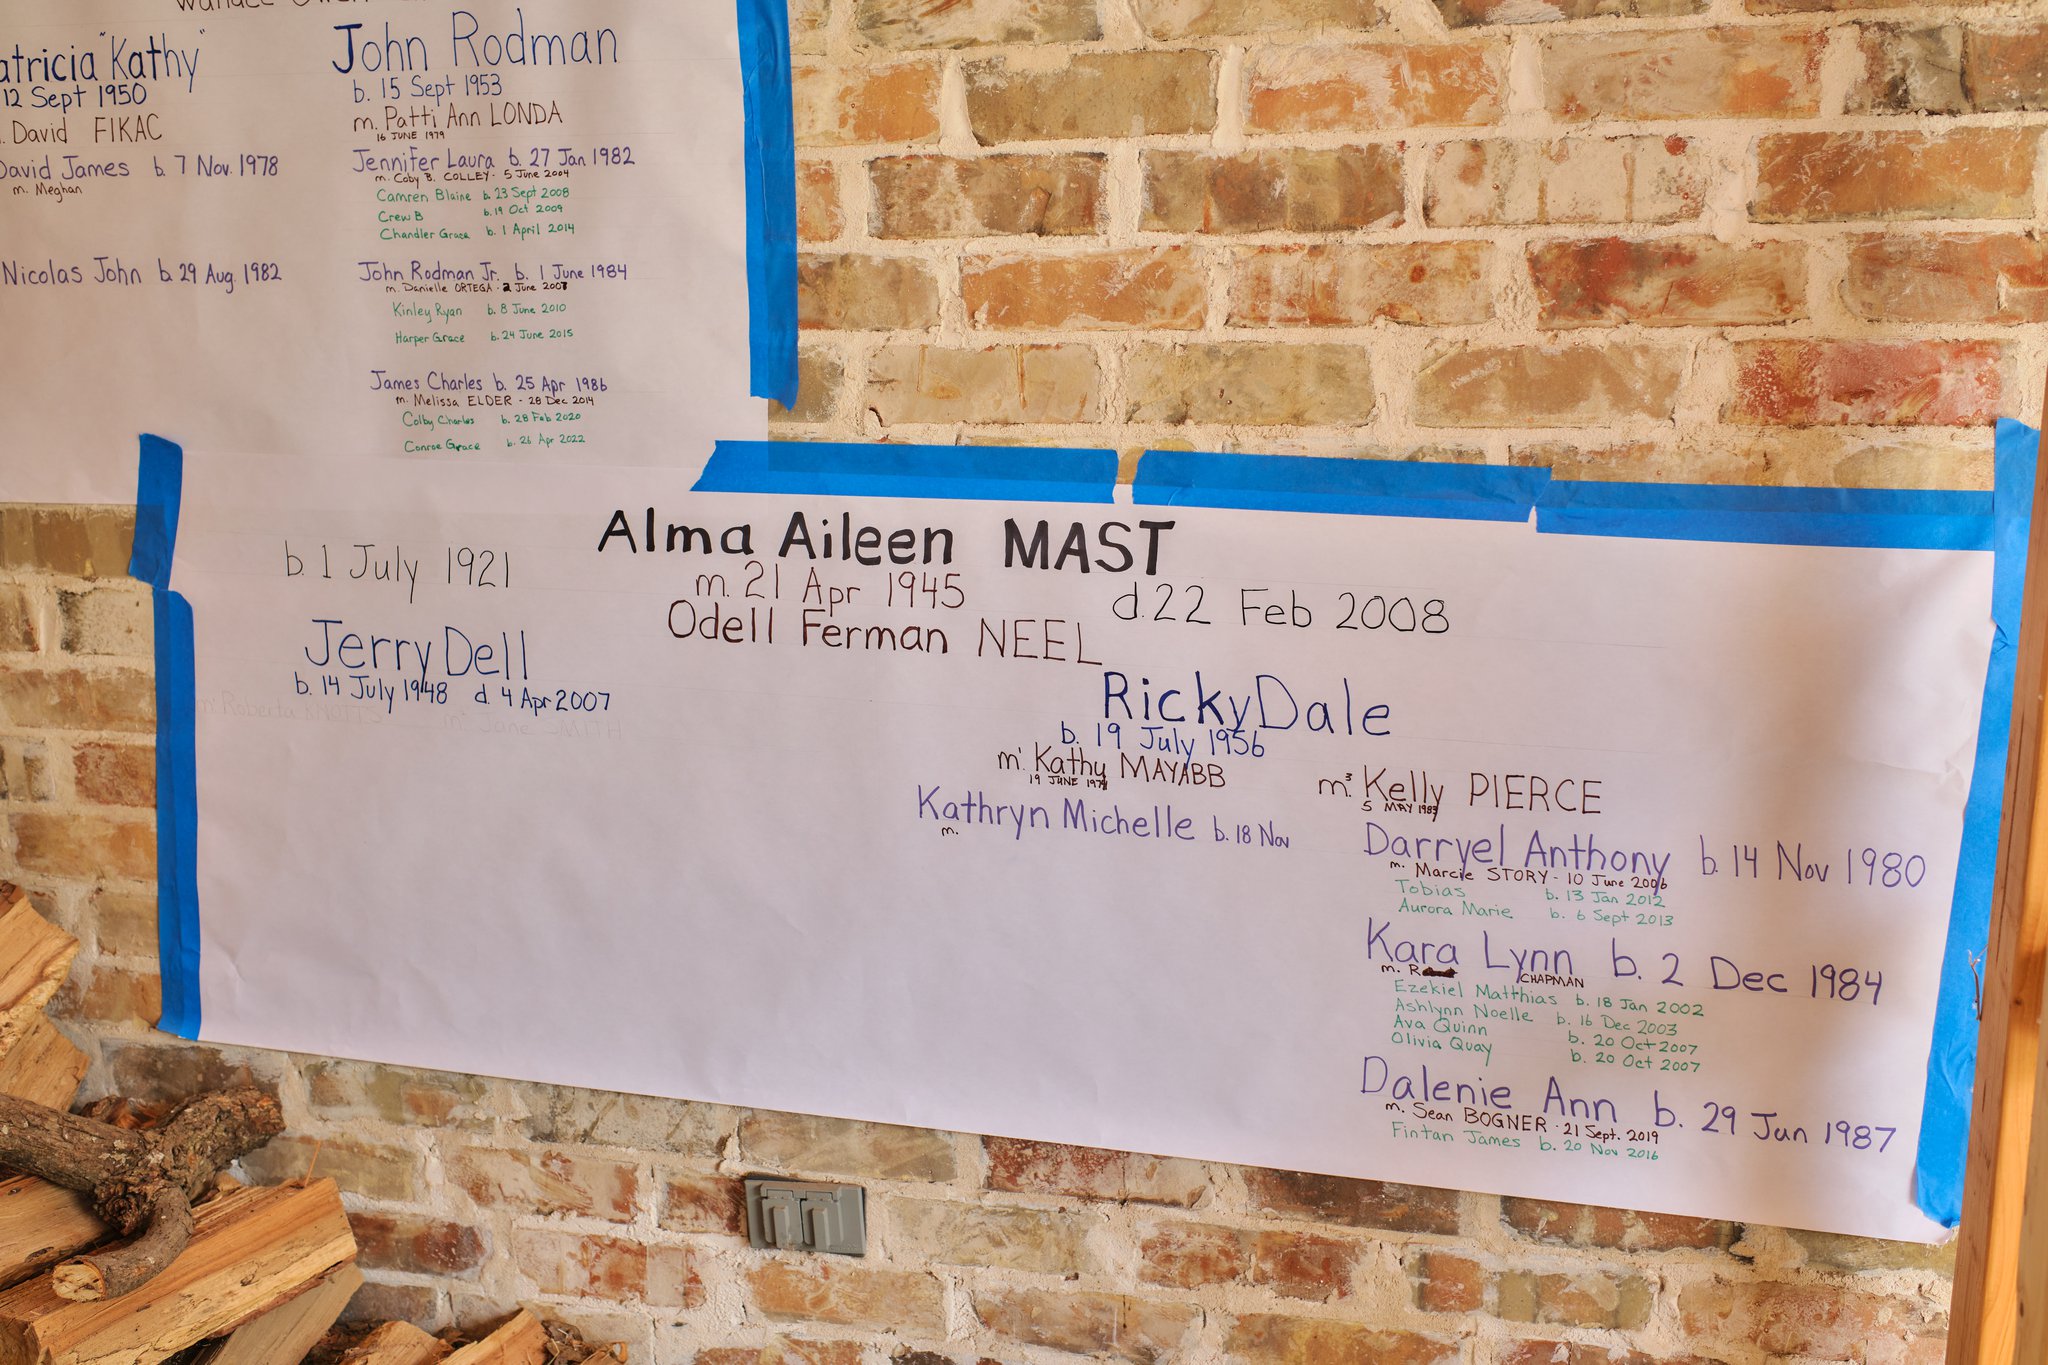 "Kathy"
12 Sept 1950
David FIKAC
David James b. 7 Nov. 1978
m. Meghan
Nicolas John b. 29 Aug. 1982
John Rodman
b. 15 Sept 1953
m. Patti Ann LONDA
16 JUNE 1979
Jennifer Laura b. 27 Jan 1982
m. Coby B. COLLEY - 5 June 2004
Camren Blaine b. 23 Sept 2008
Crew B b. 19 Oct 2009
Chandler Grace b. 1 April 2014
John Rodman Jr. b. 1 June 1984
m. Danielle ORTEGA - 2 June 2007
Kinley Ryan b. 8 June 2010
Harper Grace b. 24 June 2015
James Charles b. 25 Apr 1986
m. Melissa ELDER - 28 Dec 2014
Colby Charles b. 28 Feb 2020
Conroe Grace b. 26 Apr 2022
Alma Aileen MAST
b. 1 July 1921
m. 21 Apr 1945
d. 22 Feb 2008
Odell Ferman NEEL
Jerry Dell
b. 14 July 1948 d. 4 Apr 2007
m. Roberta KNOTTS m. Jane SMITH
Ricky Dale
b. 19 July 1956
m.¹ Kathy MAYABB
19 JUNE
Kathryn Michelle b. 18 Nov
m.
m.³ Kelly PIERCE
5 MAY 1983
Darryel Anthony b. 14 Nov 1980
m. Marcie STORY - 10 June 2006
Tobias b. 13 Jan 2012
Aurora Marie b. 6 Sept 2013
Kara Lynn b. 2 Dec 1984
m. R CHAPMAN
Ezekiel Matthias b. 18 Jan 2002
Ashlynn Noelle b. 16 Dec 2003
Ava Quinn b. 20 Oct 2007
Olivia Quay b. 20 Oct 2007
Dalenie Ann b. 29 Jan 1987
m. Sean BOGNER - 21 Sept. 2019
Fintan James b. 20 Nov 2016